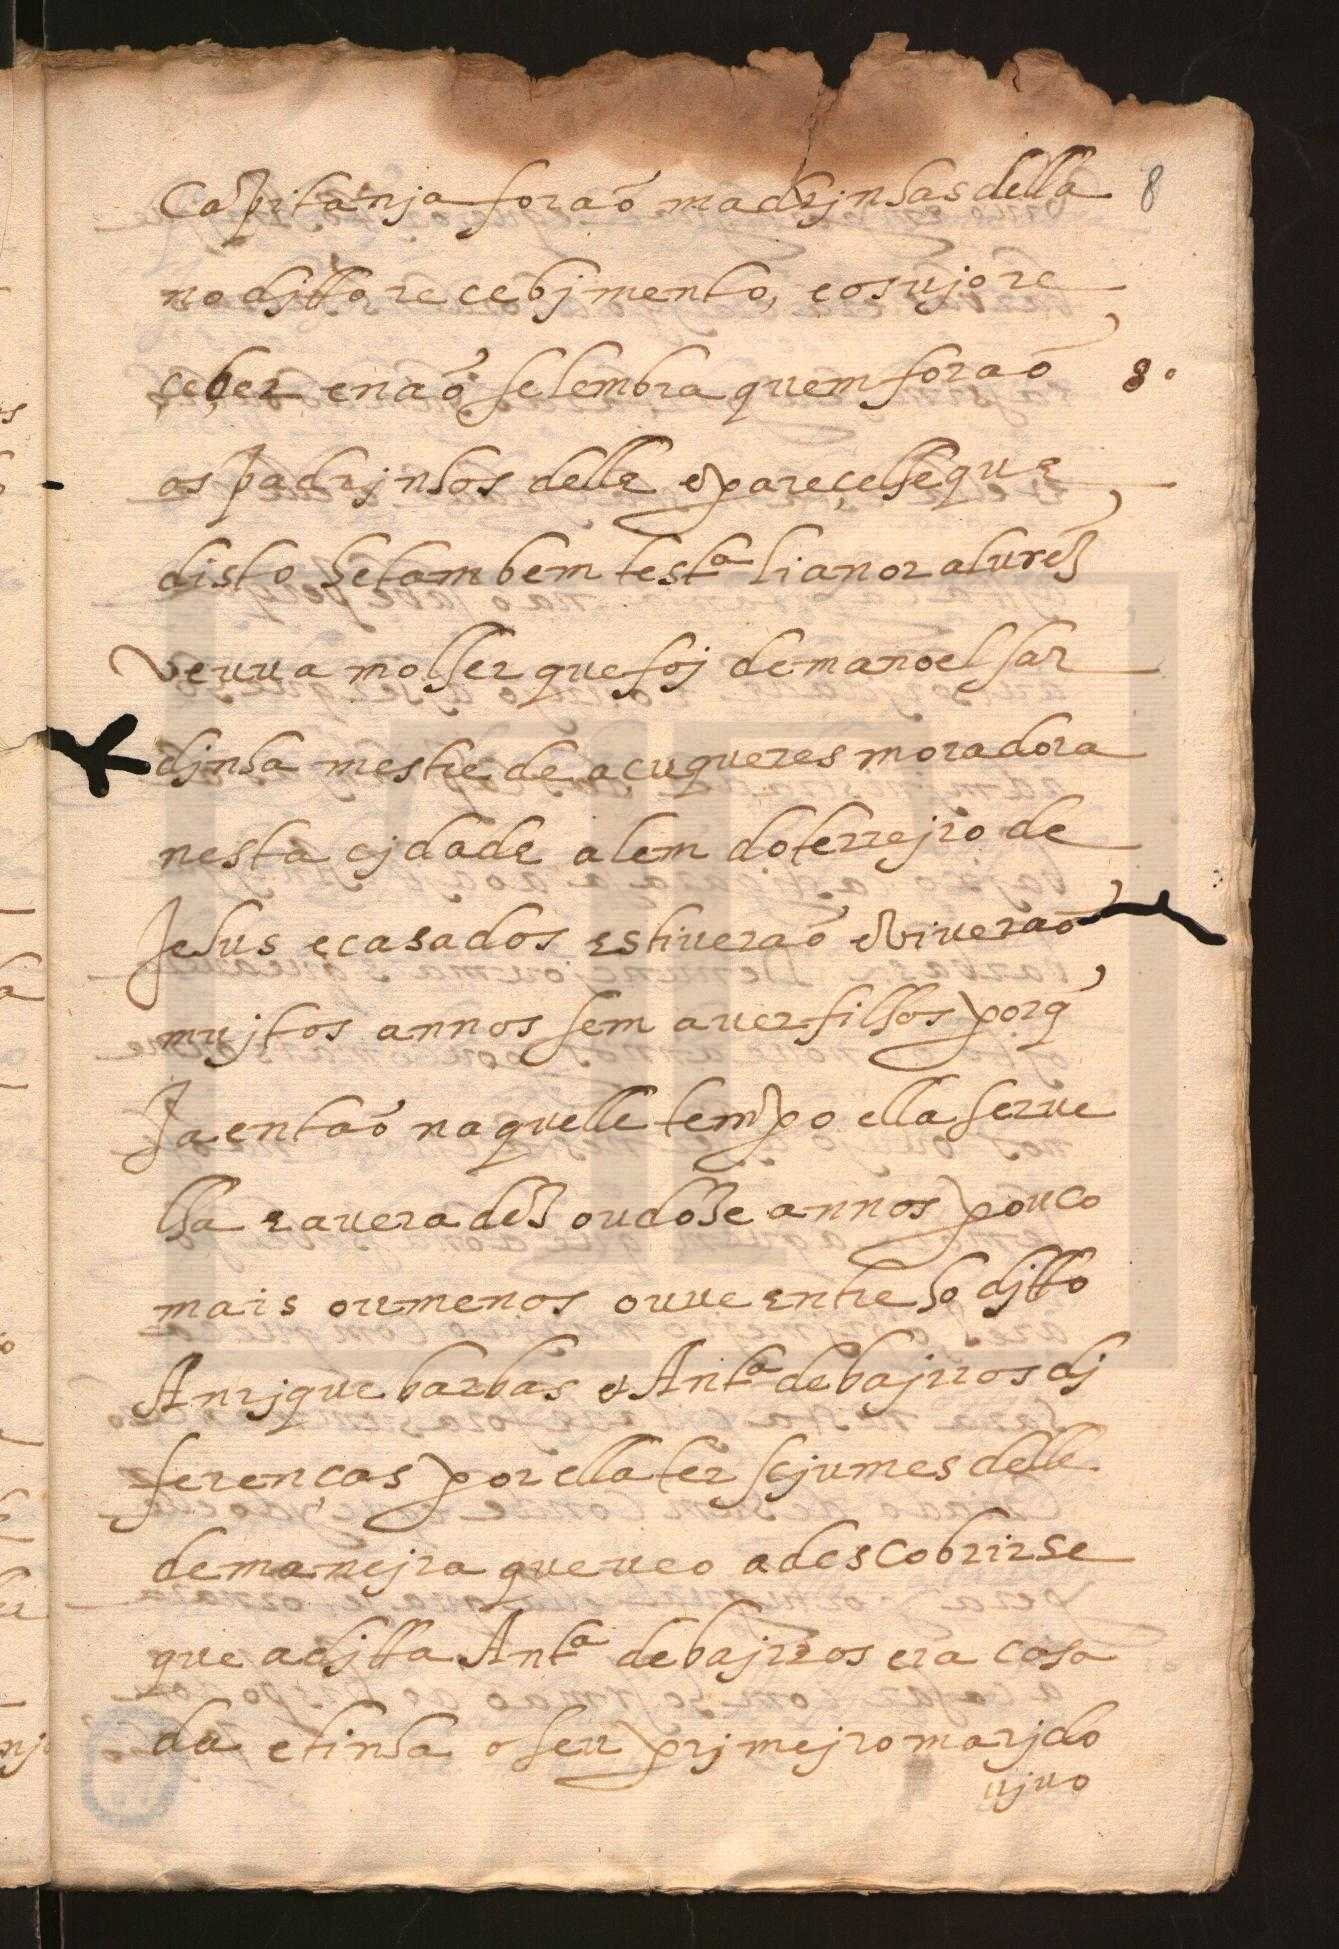 Capitanja foraõ madrjnhas della
8
no djtto recebjmento, e os vjo re
çeber e naõ se lembra quem foraõ
8.
os padrjnhos delle & pareçelhe que
disto he tambem test.a lianor alvrez
veuva molher que foj de manoel sar
djnha mestre de açuqueres moradora
nesta cjdade alem do terrejro de
Jesus e casados estiveraõ & viveraõ
mujtos annos sem aver filhos porq̃
Ja entaõ naquelle tempo ella he rve
lha e avera dez ou doze annos pouco
mais ou menos ouve entre ho djtto
Anrjque barbas & Ant.a de bajrros dj
ferenças por ella ter sejumes delle
de manejra que veo a descobrirse
que a djtta Ant.a de bajrros era casa
da e tinha o seu prjmejro marjdo
vjvo